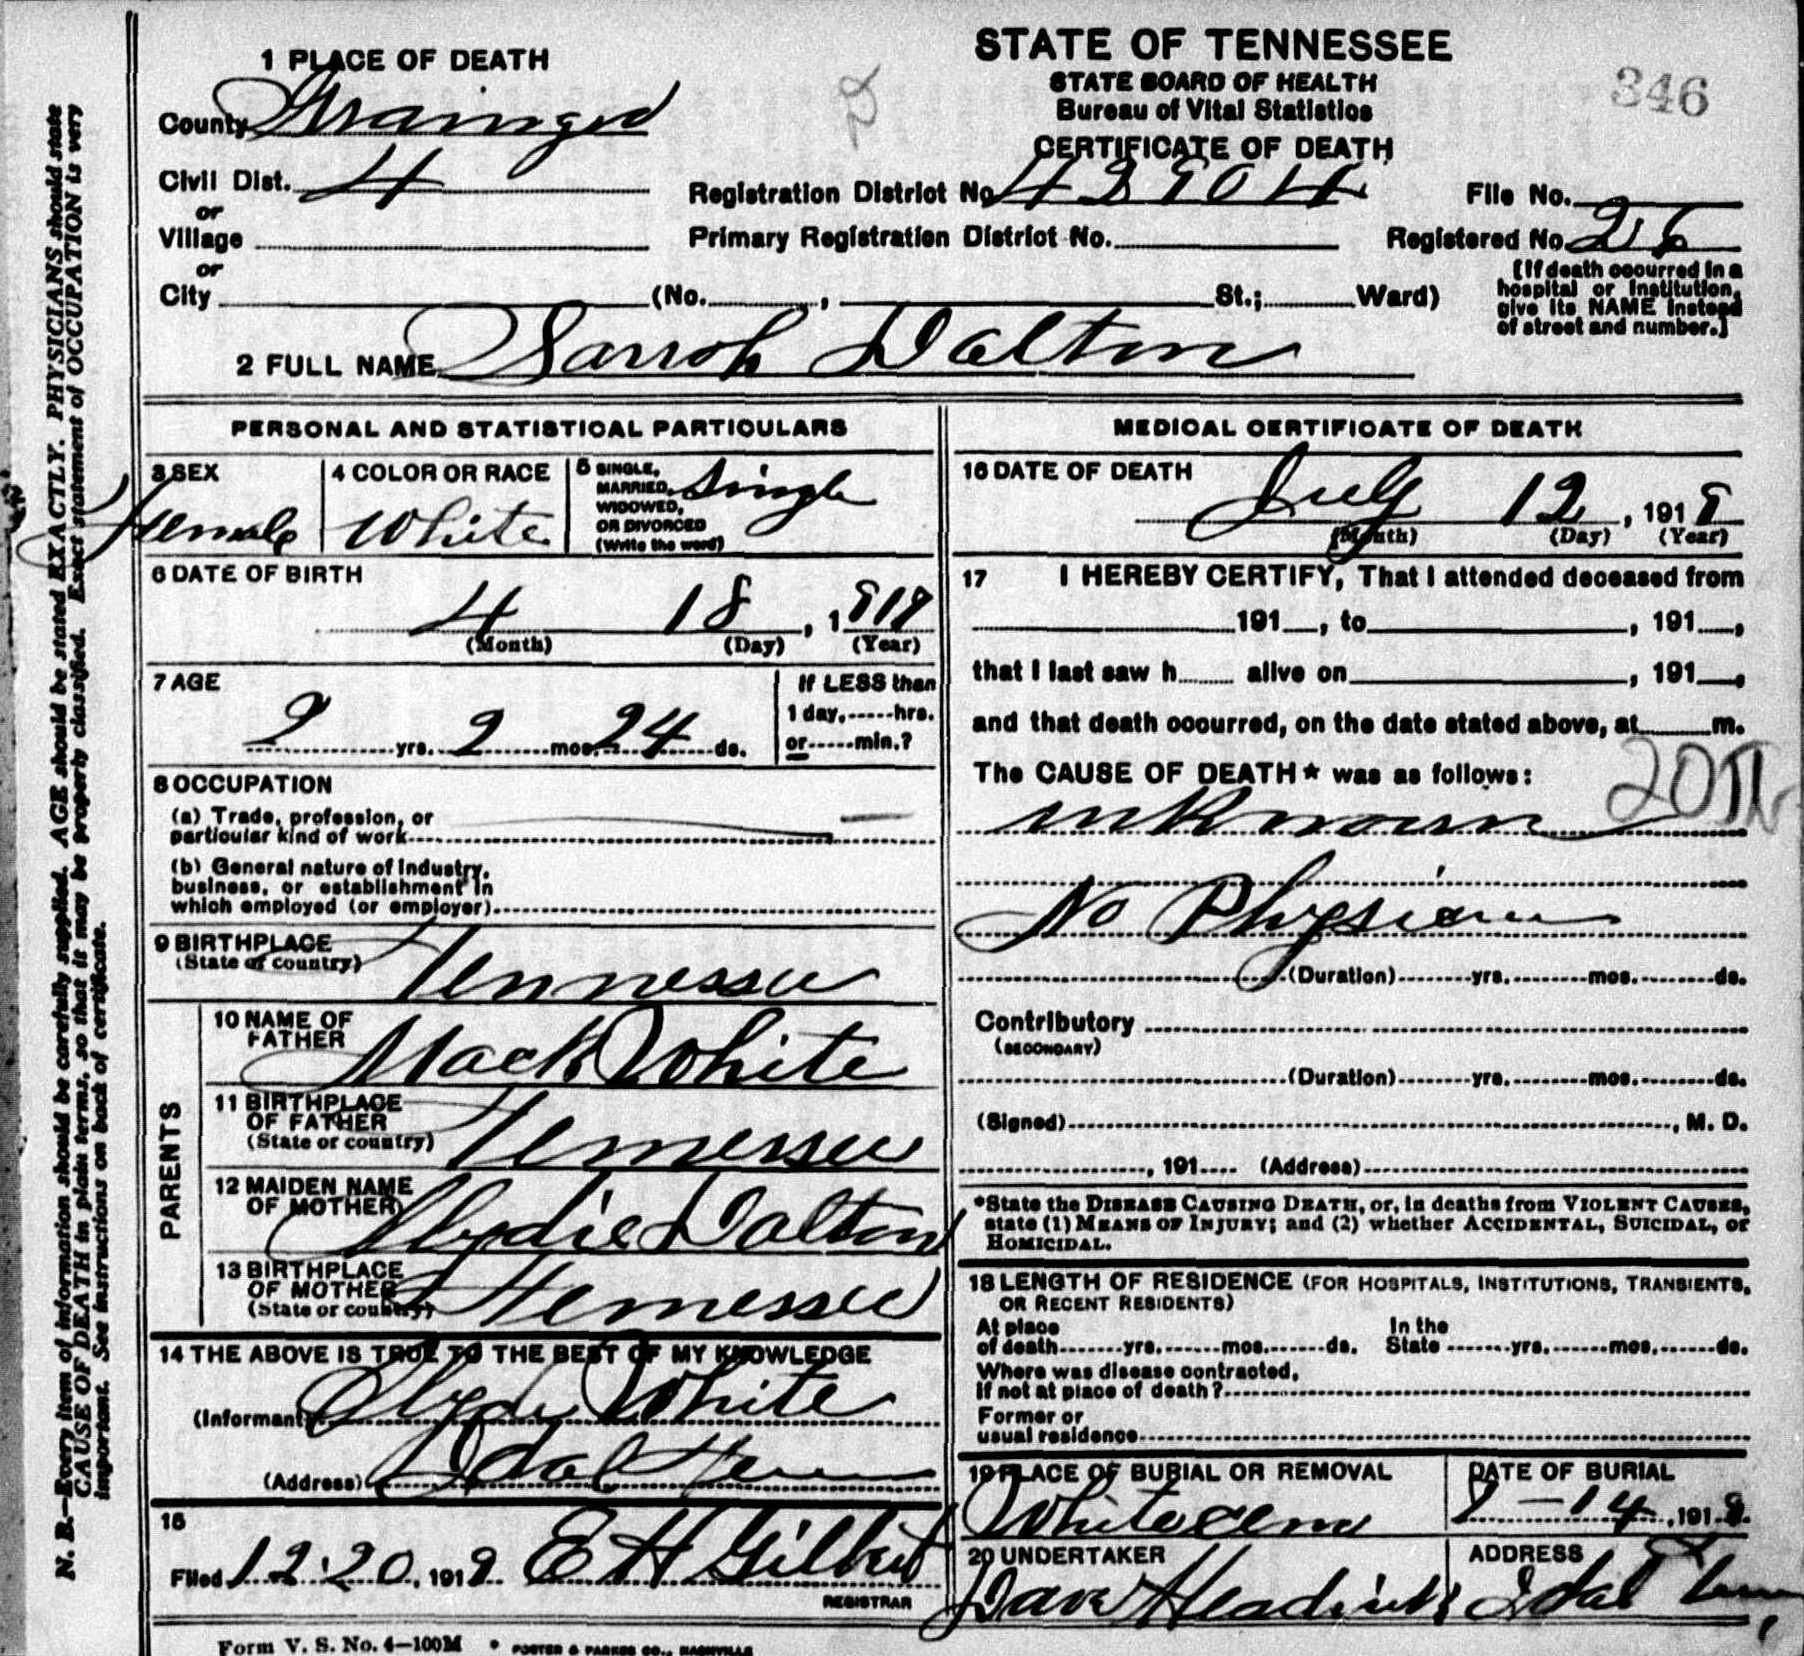 STATE OF TENNESSEE
STATE BOARD OF HEALTH
Bureau of Vital Statistics
CERTIFICATE OF DEATH
346
1 PLACE OF DEATH
County Grainger
Civil Dist. 4
or
Village
or
City (No. , St.; Ward)
Registration District No. 42904
File No.
Primary Registration District No.
Registered No. 26
[If death occurred in a
hospital or institution,
give its NAME instead
of street and number.]
2 FULL NAME Sarroh Dalton
PERSONAL AND STATISTICAL PARTICULARS
3 SEX
Female
4 COLOR OR RACE
White
5 SINGLE,
MARRIED,
WIDOWED,
OR DIVORCED
(Write the word)
Single
6 DATE OF BIRTH
4 18 , 1
(Month) (Day) (Year)
7 AGE
yrs. 2 mos. 24 ds.
If LESS than
1 day, hrs.
or min.?
8 OCCUPATION
(a) Trade, profession, or
particular kind of work
(b) General nature of Industry,
business, or establishment in
which employed (or employer)
9 BIRTHPLACE
(State or country)
Tennessee
PARENTS
10 NAME OF
FATHER
Mack White
11 BIRTHPLACE
OF FATHER
(State or country)
Tennessee
12 MAIDEN NAME
OF MOTHER
Dalton
13 BIRTHPLACE
OF MOTHER
(State or country)
Tennessee
14 THE ABOVE IS TRUE TO THE BEST OF MY KNOWLEDGE
(Informant) White
(Address) Idol Tenn
15
Filed 12-20, 191 E H Gilbert
REGISTRAR
Form V. S. No. 4—100M • FOSTER & PARKES CO., NASHVILLE
MEDICAL CERTIFICATE OF DEATH
16 DATE OF DEATH
July 12 , 1918
(Month) (Day) (Year)
17 I HEREBY CERTIFY, That I attended deceased from
191 , to , 191 ,
that I last saw h alive on , 191 ,
and that death occurred, on the date stated above, at m.
The CAUSE OF DEATH* was as follows:
unknown
No Physician
(Duration) yrs. mos. ds.
Contributory
(SECONDARY)
(Duration) yrs. mos. ds.
(Signed) , M. D.
, 191 (Address)
*State the DISEASE CAUSING DEATH, or, in deaths from VIOLENT CAUSES,
state (1) MEANS OF INJURY; and (2) whether ACCIDENTAL, SUICIDAL, or
HOMICIDAL.
18 LENGTH OF RESIDENCE (FOR HOSPITALS, INSTITUTIONS, TRANSIENTS,
OR RECENT RESIDENTS)
At place
of death yrs. mos. ds.
In the
State yrs. mos. ds.
Where was disease contracted,
If not at place of death?
Former or
usual residence
19 PLACE OF BURIAL OR REMOVAL
White cem
DATE OF BURIAL
14 , 1918
20 UNDERTAKER
Dave
ADDRESS
Idol Tenn
N. B.—Every item of information should be carefully supplied. AGE should be stated EXACTLY. PHYSICIANS should state
CAUSE OF DEATH in plain terms, so that it may be properly classified. Exact statement of OCCUPATION is very
important. See instructions on back of certificate.